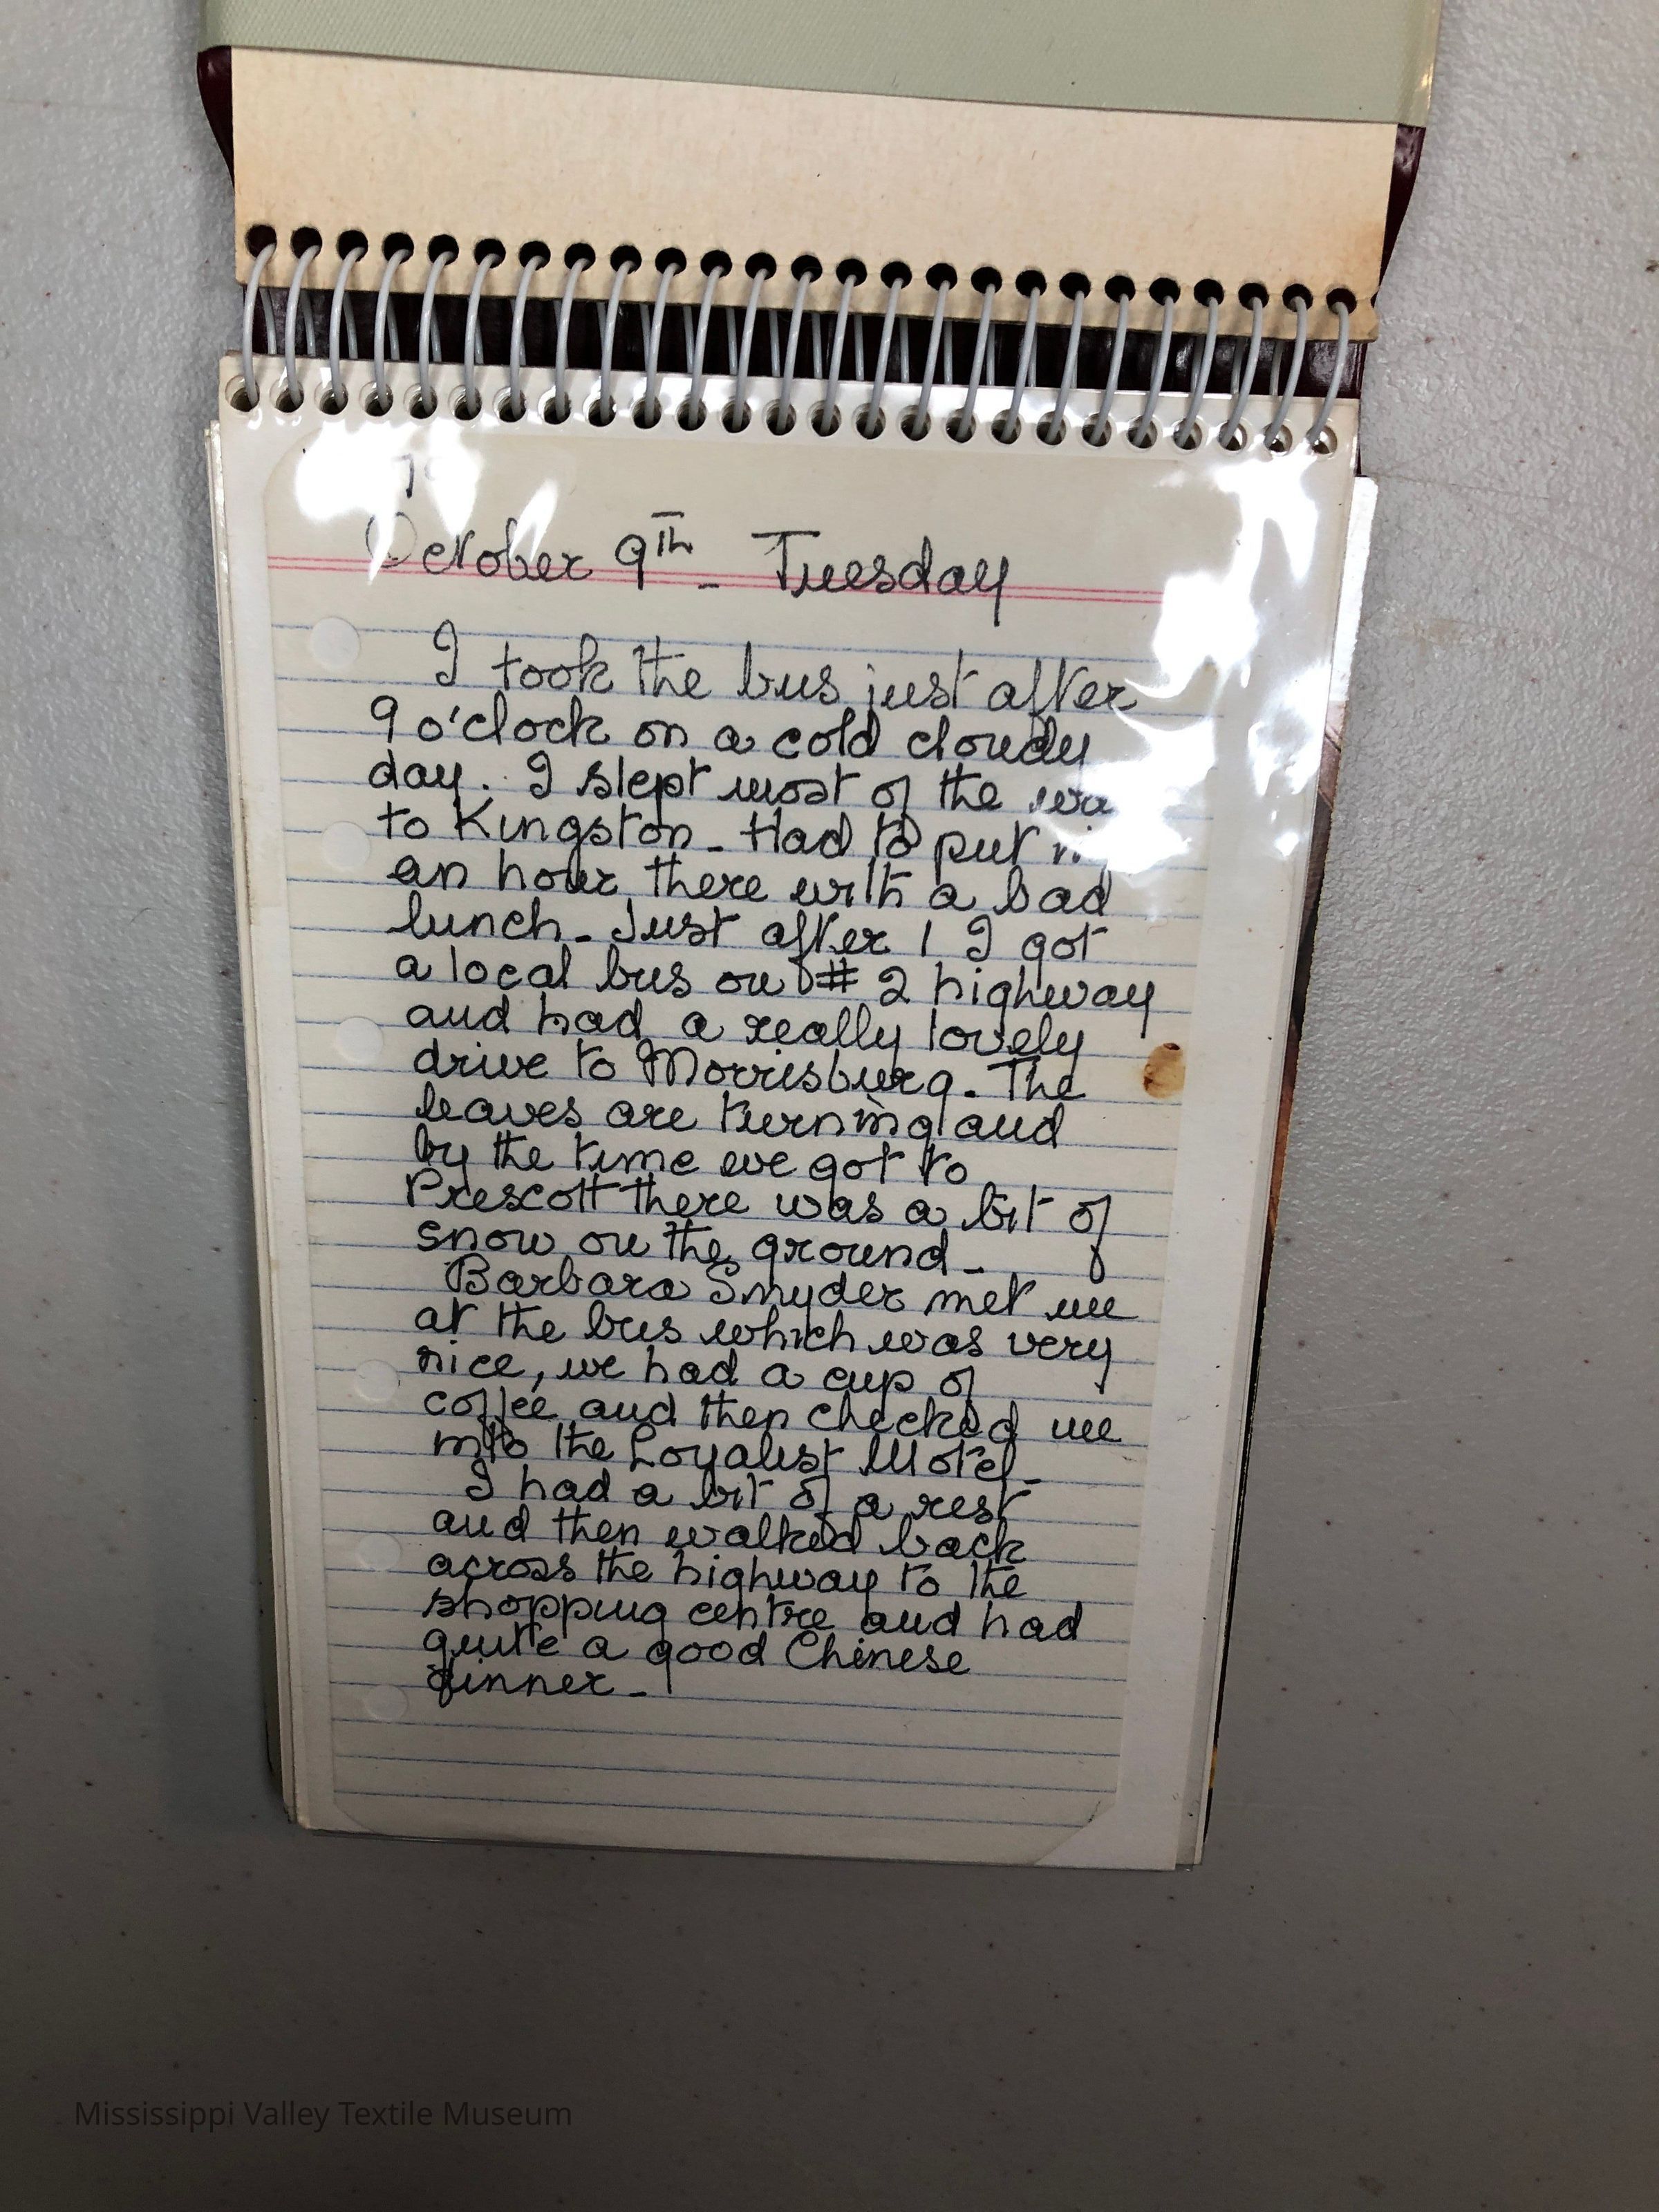 October 9th - Tuesday
I took the bus just after
9 o'clock on a cold cloudy
day. I slept most of the
to Kingston - Had to put
an hour there with a bad
lunch - Just after 1 I got
a local bus on # 2 highway
and had a really lovely
drive to Morrisburg. The
leaves are turning and
by the time we got to
Prescott there was a bit of
snow on the ground -
Barbara Snyder met me
at the bus which was very
nice, we had a cup of
coffee and then checked me
into the Loyalist Motel -
I had a bit of a rest
and then walked back
across the highway to the
shopping centre and had
quite a good Chinese
dinner -
Mississippi Valley Textile Museum